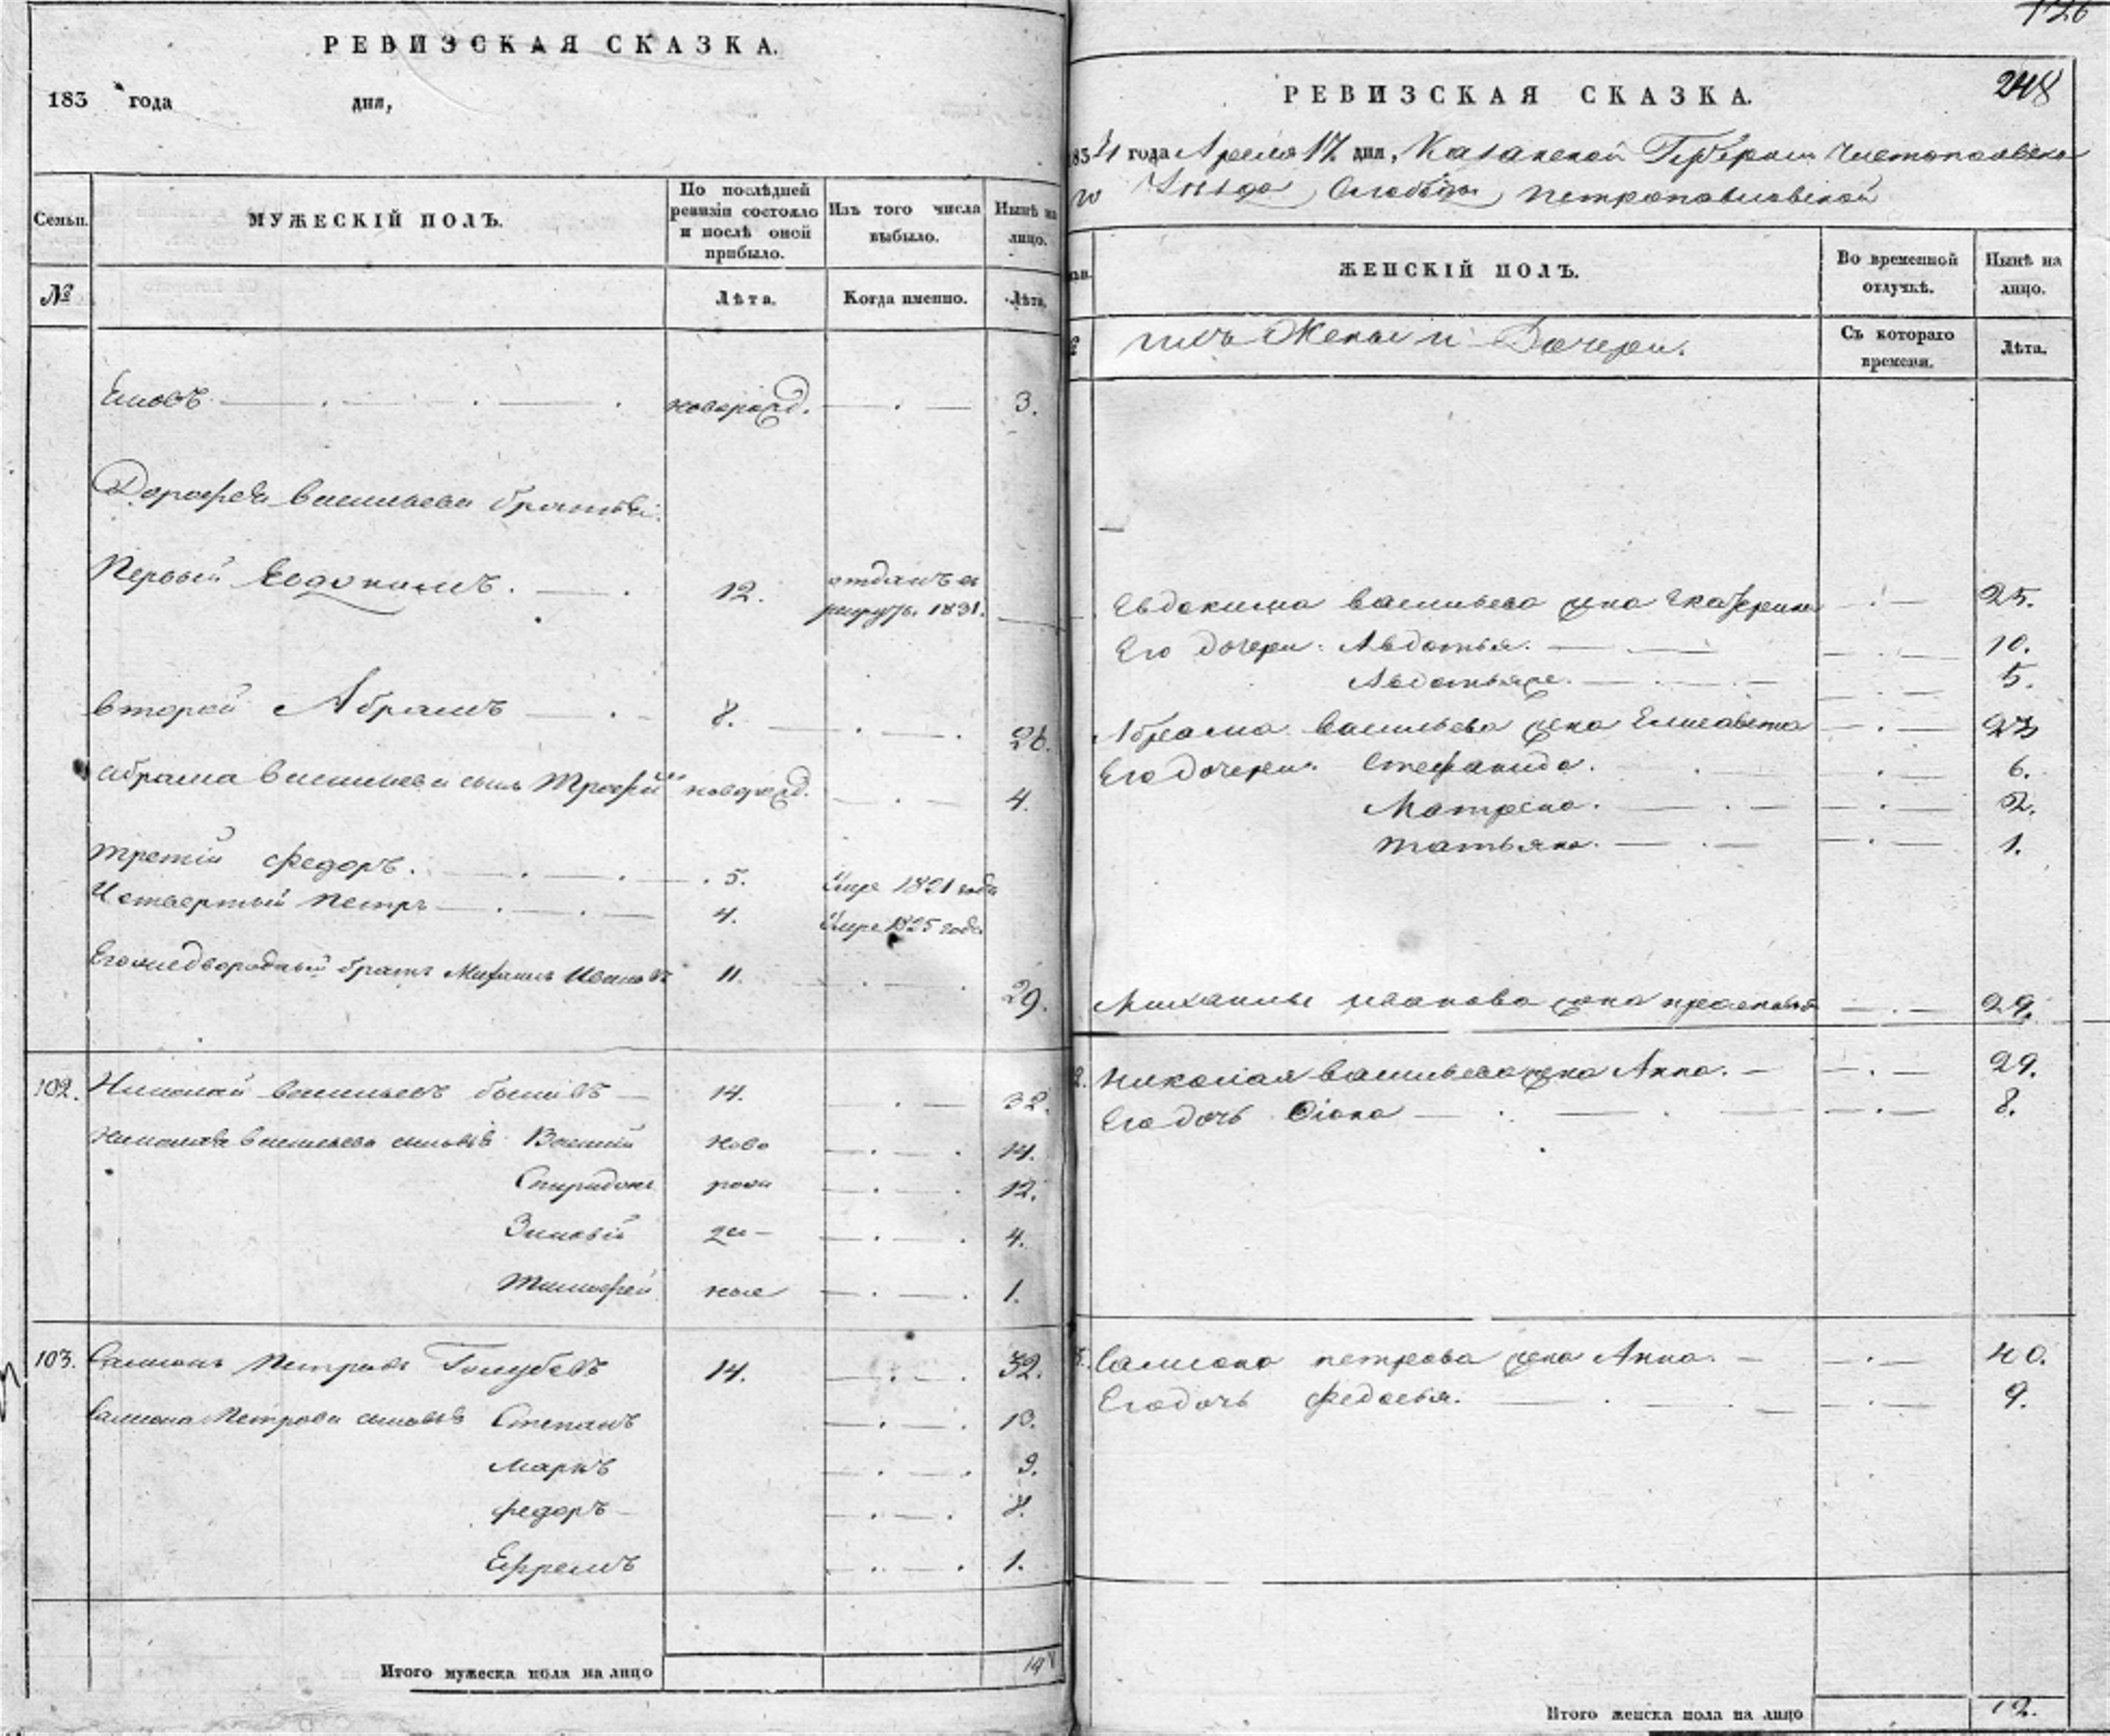 РЕВИЗСКАЯ СКАЗКА.
183 года дня,
Семьи.
МУЖЕСКІЙ ПОЛЪ.
По послѣдней ревизіи состояло и послѣ оной прибыло.
Изъ того числа выбыло.
Нынѣ на лицо.
№
Лѣта.
Когда именно.
Лѣта.
новорожд. 3.
Дорофея Васильева братья:
Первый Евдокимъ. 12. отданъ въ рекруты 1831.
Второй Абрамъ 8. 26.
Абрама Васильева сынъ Трофимъ новорожд. 4.
Третій Федоръ. 5. Умре 1821 года
Четвертый Петръ 4. Умре 1825 года
Его двоюродный братъ Михаилъ Ивановъ 11. 29.
102. Николай Васильевъ 14. 32.
Николая Васильева сыновья Василий ново 14.
Спиридонъ рож 12.
Зиновій ден 4.
Тимофей ные 1.
103. Самсонъ Петровъ Голубевъ 14. 32.
Самсона Петрова сыновья Степанъ 10.
Маркъ 9.
Федоръ 8.
Ефремъ 1.
Итого мужеска пола на лицо 14
248
РЕВИЗСКАЯ СКАЗКА.
1834 года Апреля 17 дня, Казанской Губернии Чистопольска
го Уезда Слободы Петропавловской
ЖЕНСКІЙ ПОЛЪ.
Во временной отлучкѣ.
Нынѣ на лицо.
ихъ Жены и Дочери.
Съ котораго времени.
Лѣта.
Евдокима Васильева жена Екатерина 25.
Его дочери: Авдотья. 10.
Авдотья же. 5.
Абрама Васильева жена Елисавета 27
Его дочери: Степанида. 6.
Матрена. 2.
Татьяна. 1.
Михаилы Иванова жена Прасковья 29.
Николая Васильева жена Анна. 29.
Его дочь 8.
Самсона Петрова жена Анна. 40.
Его дочь Федосья. 9.
Итого женска пола на лицо 12.